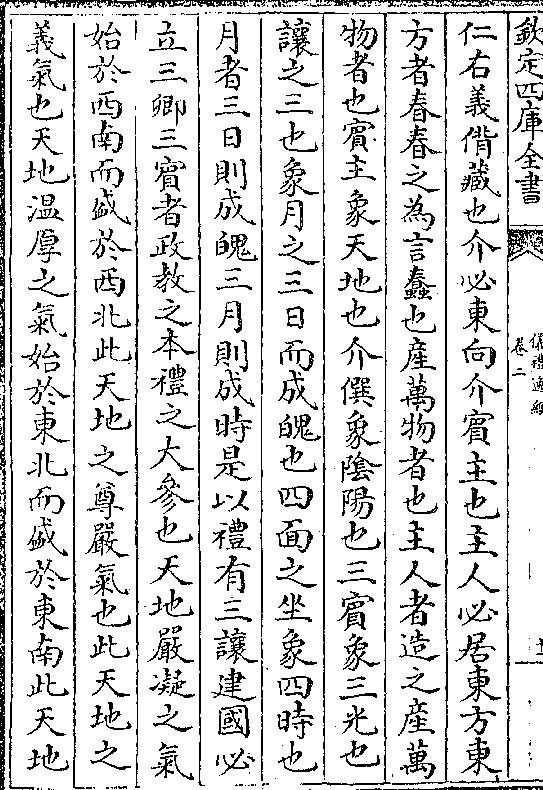 欽定四庫全書
儀禮逸經
卷二
仁右義偝藏也介必東向介賓主也主人必居東方東
方者春春之為言蠢也產萬物者也主人者造之產萬
物者也賓主象天地也介僎象陰陽也三賓象三光也
讓之三也象月之三日而成魄也四面之坐象四時也
月者三日則成魄三月則成時是以禮有三讓建國必
立三卿三賓者政教之本禮之大參也天地嚴凝之氣
始於西南而盛於西北此天地之尊嚴氣也此天地之
義氣也天地温厚之氣始於東北而盛於東南此天地